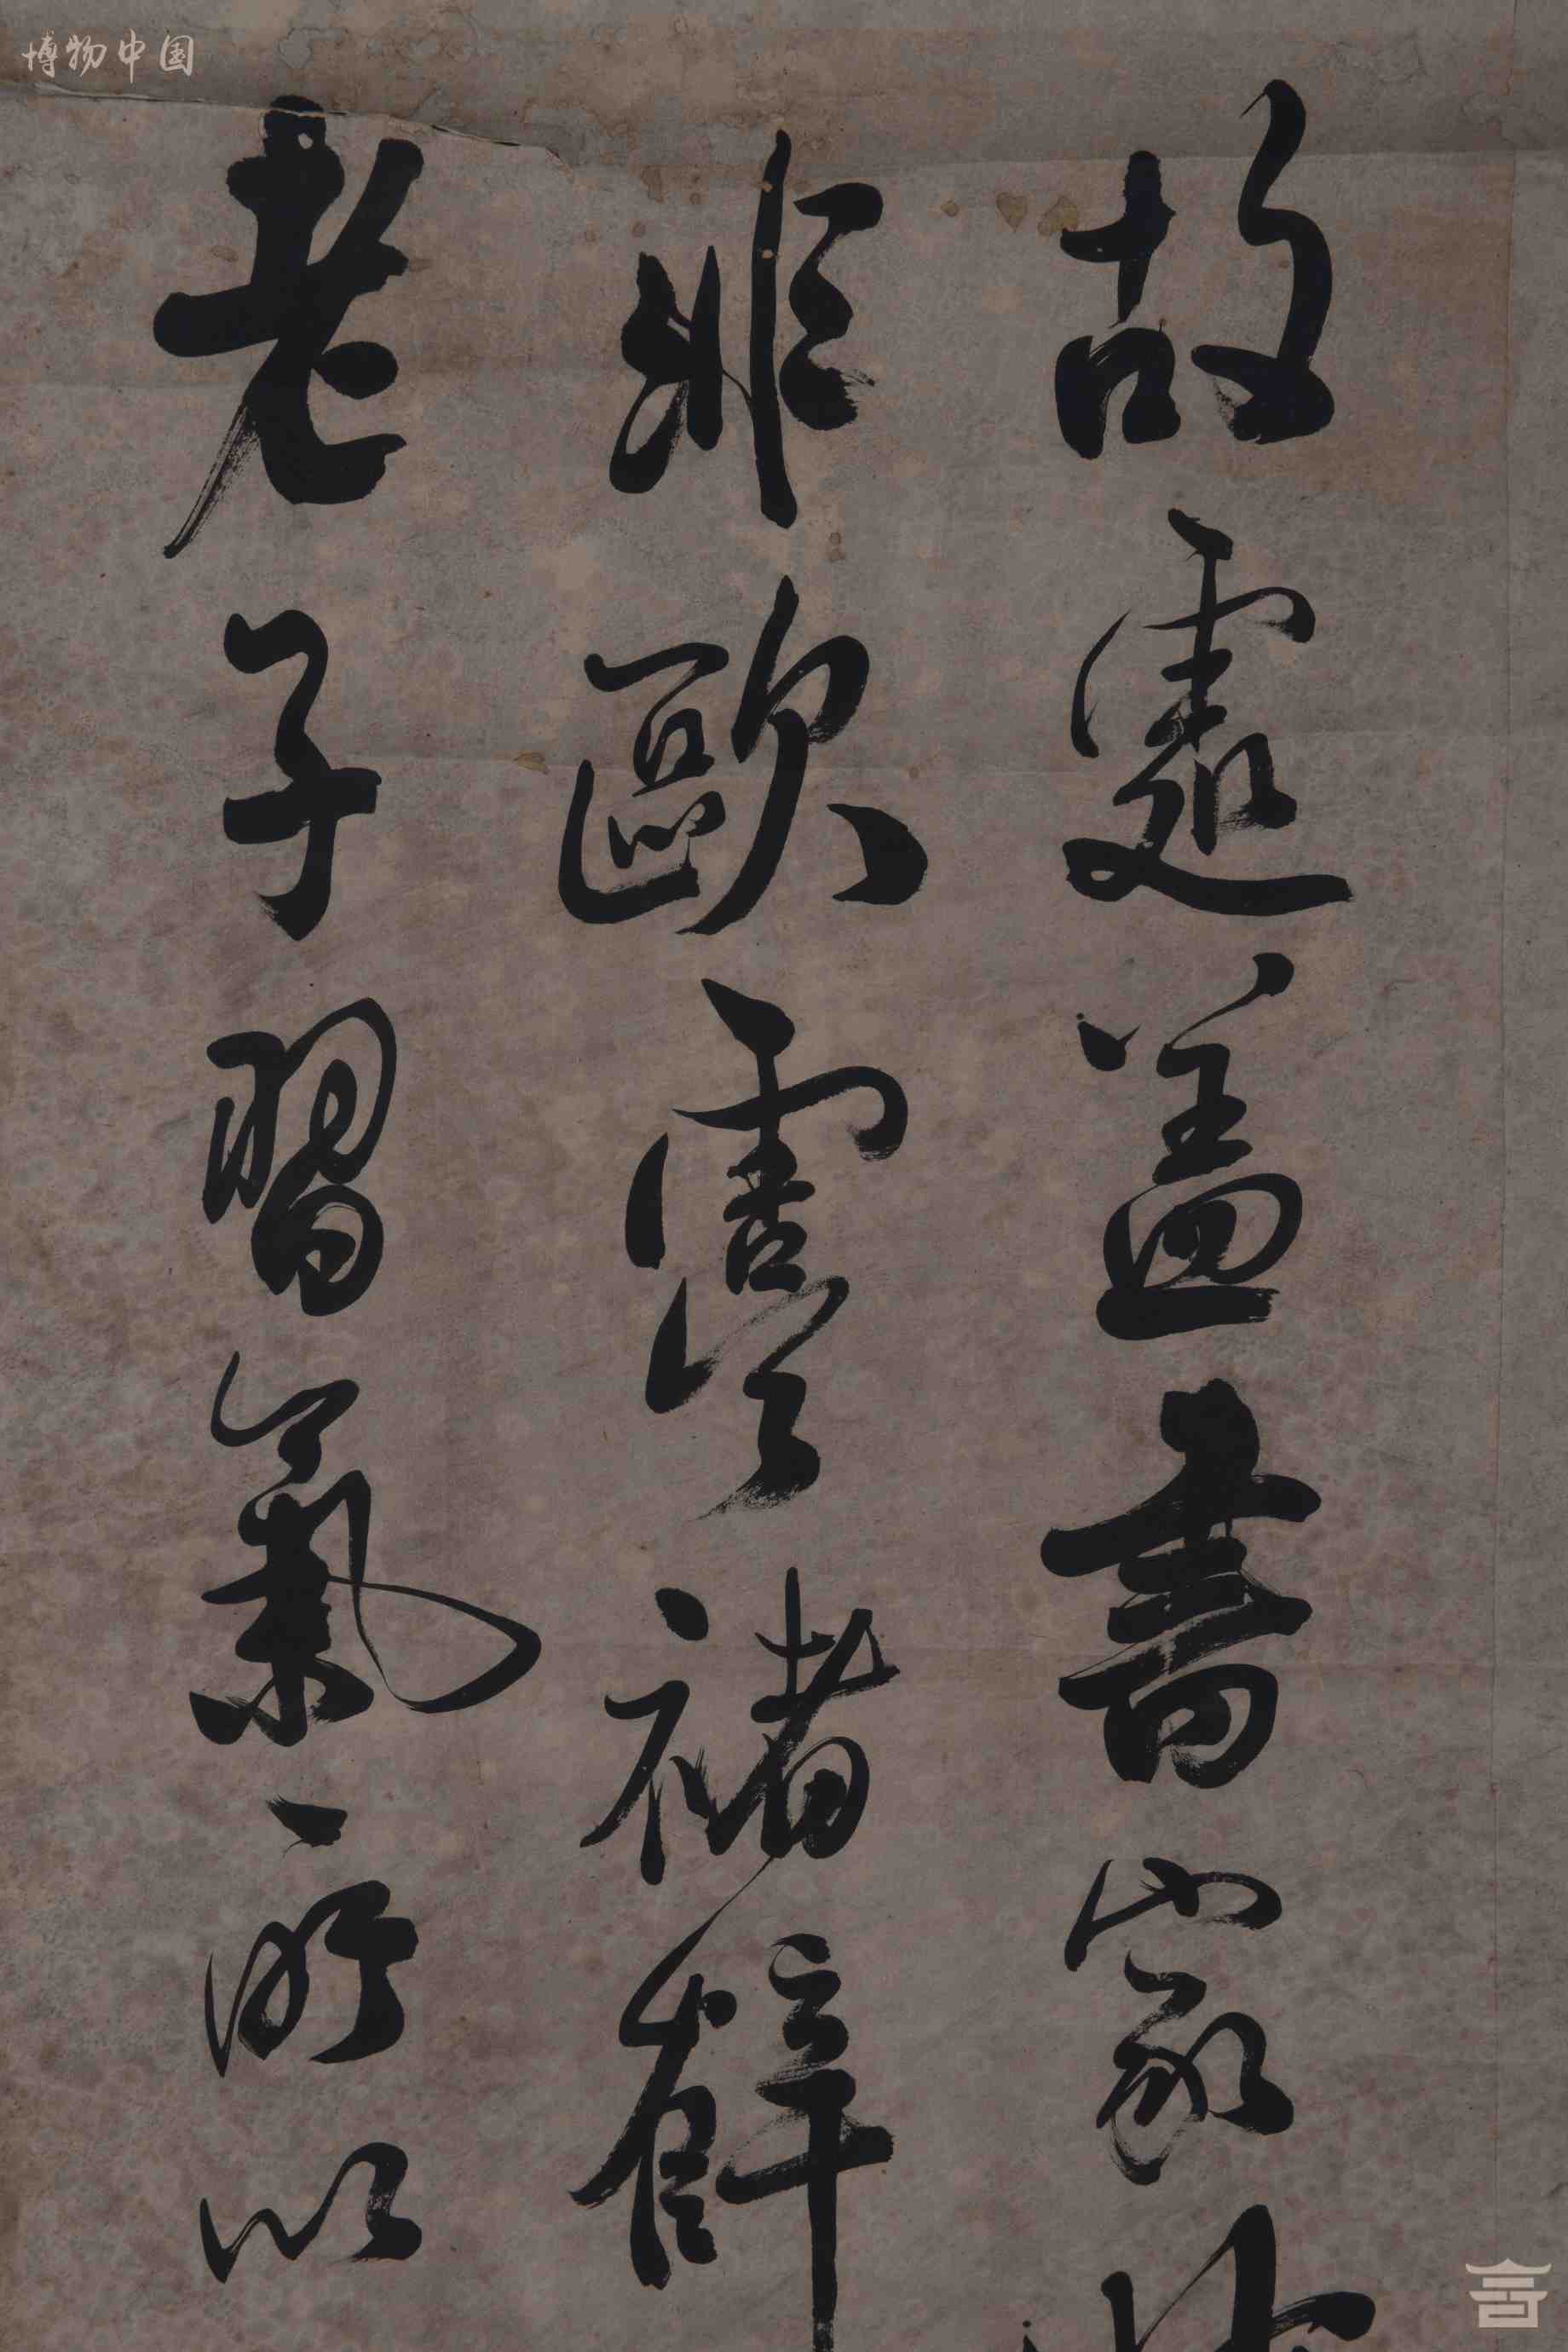 博物中国
故處盖書家
非歐虞褚薛
老子習氣所以